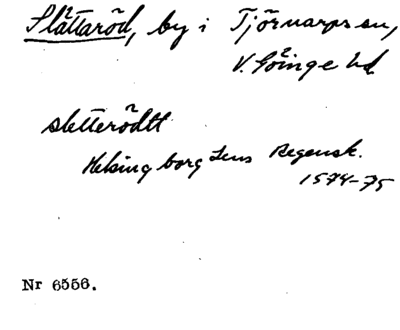 Slättaröd, by i Tjörnarps sn,
V. Göinge hd
sletterödtt
Helsingborg Lens Regensk.
1574-75
Nr 6556.